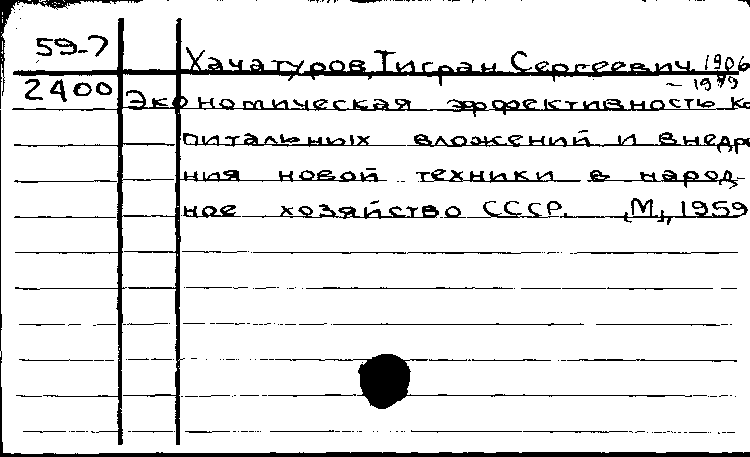 59-7
Хачатуров, Тигран Сергеевич 1906
- 1989
2400
Экономическая эффективность ка
питальных вложений и внедре
ния новой техники в народ-
ное хозяйство СССР. „М", 1959